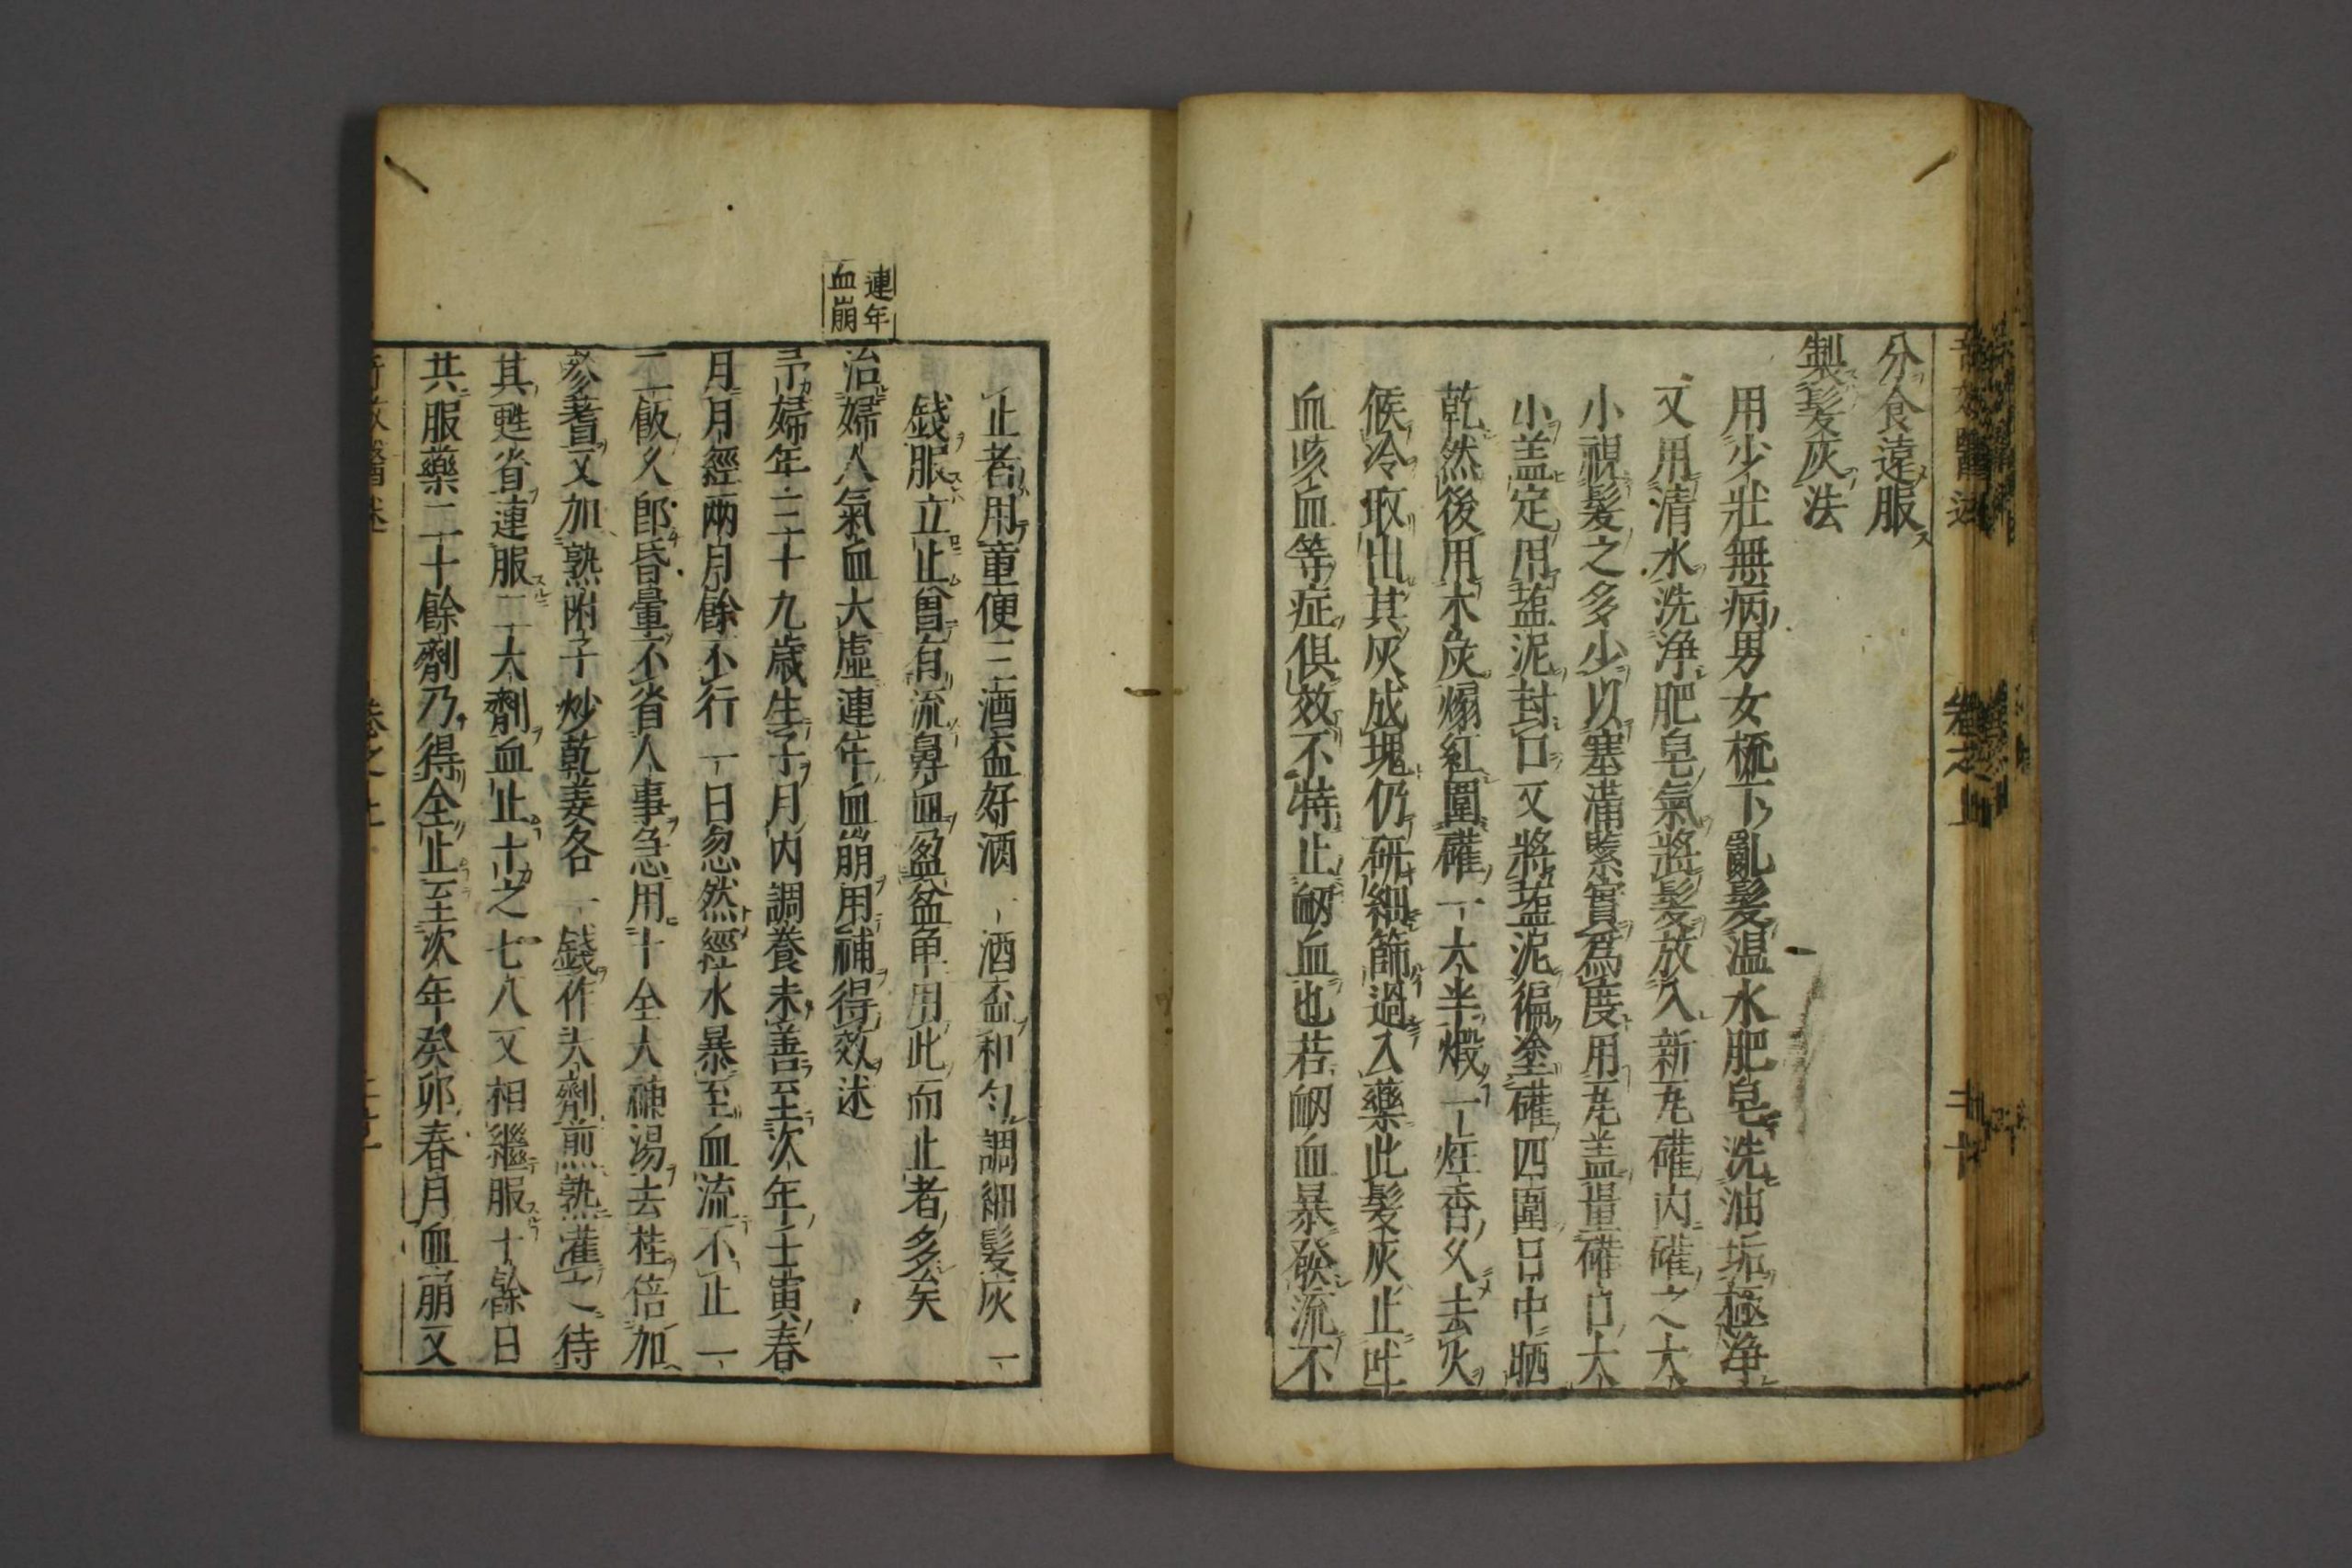 分食遠服
製髮灰法
用少壯無病男女梳下亂髮温水肥皂洗油垢極淨
又用清水洗淨肥皂氣將髮放入新瓦礶内礶之大
小視髮之多少以塞滿緊實爲度用瓦盖量礶口大
小盖定用塩泥封口又將塩泥徧塗礶四圍日中晒
乾然後用木炭煽紅圍礶一大半煅一炷香久去火
候冷取出其灰成塊仍研細篩過入藥此髮灰止吐
血咳血等症俱效不特止衂血也若衂血暴發流不
止者用童便三酒盃好酒一酒盃和匀調細髮灰一
錢服立止曾有流鼻血盈盆甲用此而止者多矣
連年
血崩
治婦人氣血大虛連年血崩用補得效述
予婦年三十九歲生子月内調養未善至次年壬寅春
月月經兩月餘不行一日忽然經水暴至血流不止一
二飯久即昏暈不省人事急用十全大補湯去桂倍加
參耆又加熟附子炒乾姜各一錢作大劑煎熟灌之待
其甦省連服二大劑血止十之七八又相繼服十餘日
共服藥二十餘劑乃得全止至次年癸卯春月血崩又
卷之上